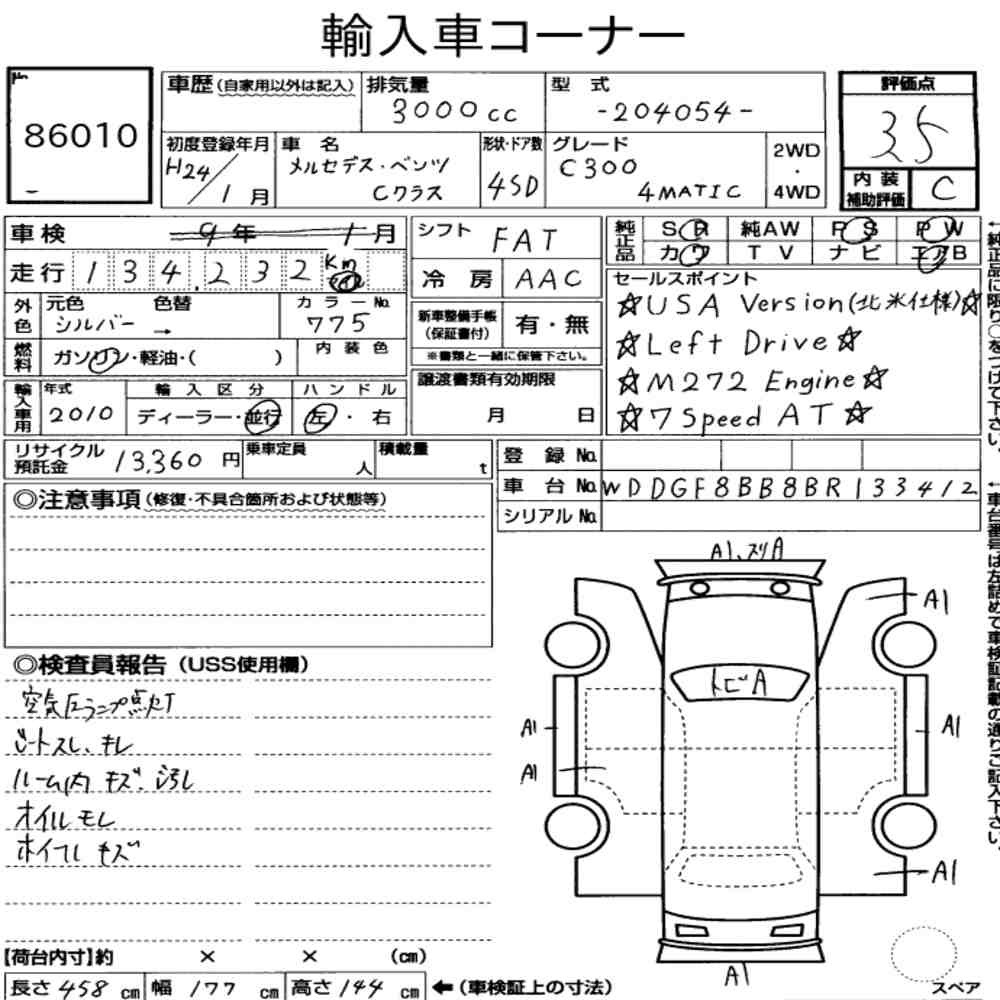 輸入車コーナー
No.
86010
車歴(自家用以外は記入) 排気量 3000cc 型式 -204054-
初度登録年月 H24/1月 車名 メルセデス・ベンツ Cクラス 形状・ドア数 4SD グレード C300 4MATIC 2WD・4WD
評価点 3.5
内装補助評価 C
車検 9年 1月
走行 134,232 Km
外色 元色 シルバー 色替 → カラーNo. 775
燃料 ガソリン・軽油・( ) 内装色
輸入車用 年式 2010 輸入区分 ディーラー・並行 ハンドル 左・右
シフト FAT
冷房 AAC
新車整備手帳(保証書付) 有・無
※書類と一緒に保管下さい。
譲渡書類有効期限
月 日
純正品 SR 純AW PS PW
カワ TV ナビ エアB
セールスポイント
☆USA Version(北米仕様)☆
☆Left Drive☆
☆M272 Engine☆
☆7Speed AT☆
←純正品に限り○をつけて下さい。
リサイクル預託金 13,360円 乗車定員 人 積載量 t
登録No.
車台No. WDDGF8BB8BR133412
シリアルNo.
←車台番号は左詰めで車検証記載の通りご記入下さい。
◎注意事項(修復・不具合箇所および状態等)
◎検査員報告(USS使用欄)
空気圧ランプ点灯
シートスレ、キレ
ルーム内 キズ、汚レ
オイルモレ
ホイールキズ
A1、スリA
A1
トビA
A1
A1
A1
A1
A1
スペア
【荷台内寸】約 × × (cm)
長さ 458 cm 幅 177 cm 高さ 144 cm ←(車検証上の寸法)